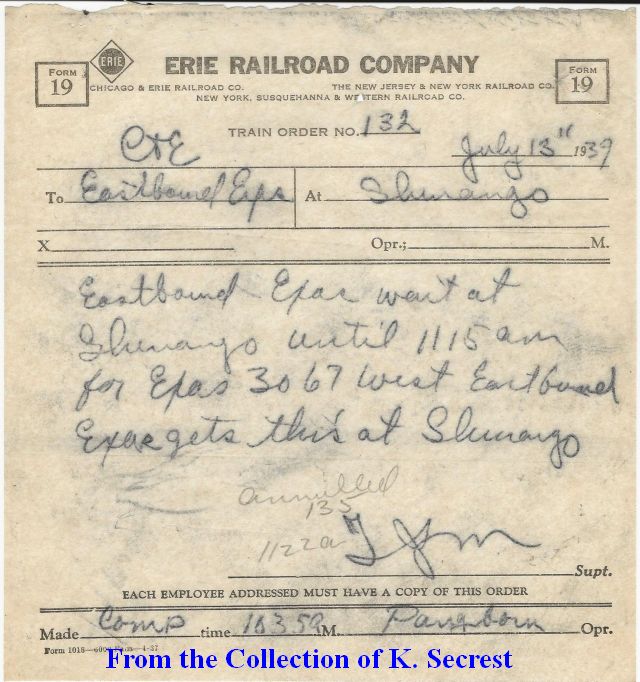 FORM 19
ERIE
ERIE RAILROAD COMPANY
FORM 19
CHICAGO & ERIE RAILROAD CO. THE NEW JERSEY & NEW YORK RAILROAD CO.
NEW YORK, SUSQUEHANNA & WESTERN RAILROAD CO.
TRAIN ORDER NO. 132
C&E July 13" 1939
To Eastbound Exps At Shenango
X Opr.; M.
Eastbound Exas wait at
Shenango until 1115 am
for Exas 3067 West Eastbound
Exas gets this at Shenango
annulled
135
1122a
Supt.
EACH EMPLOYEE ADDRESSED MUST HAVE A COPY OF THIS ORDER
Made Comp time 1035a M. Pangborn Opr.
Form 1016 4-37
From the Collection of K. Secrest